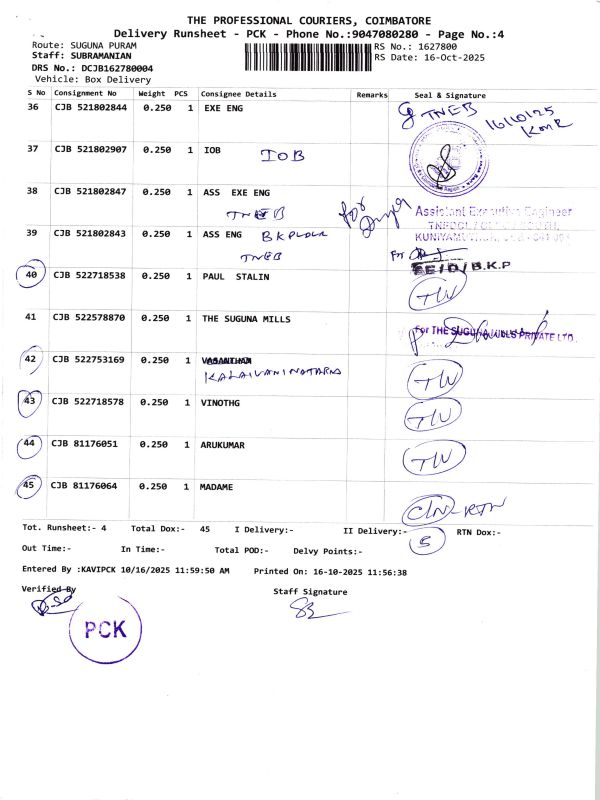 THE PROFESSIONAL COURIERS, COIMBATORE
Delivery Runsheet - PCK - Phone No.:9047080280 - Page No.:4
Route: SUGUNA PURAM
RS No.: 1627800
Staff: SUBRAMANIAN
RS Date: 16-Oct-2025
DRS No.: DCJB162780004
Vehicle: Box Delivery
S No Consignment No Weight PCS Consignee Details Remarks Seal & Signature
36 CJB 521802844 0.250 1 EXE ENG TNEB 16/10/25
37 CJB 521802907 0.250 1 IOB IOB
38 CJB 521802847 0.250 1 ASS EXE ENG
TNEB for Assistant Executive Engineer
39 CJB 521802843 0.250 1 ASS ENG
TNEB For EE/D/B.K.P
40 CJB 522718538 0.250 1 PAUL STALIN
41 CJB 522578870 0.250 1 THE SUGUNA MILLS For THE SUGUNA MILLS PRIVATE LTD.
42 CJB 522753169 0.250 1
43 CJB 522718578 0.250 1 VINOTHG
44 CJB 81176051 0.250 1 ARUKUMAR
45 CJB 81176064 0.250 1 MADAME
RTN
Tot. Runsheet:- 4 Total Dox:- 45 I Delivery:- II Delivery:- RTN Dox:-
5
Out Time:- In Time:- Total POD:- Delvy Points:-
Entered By :KAVIPCK 10/16/2025 11:59:50 AM Printed On: 16-10-2025 11:56:38
Verified By Staff Signature
PCK